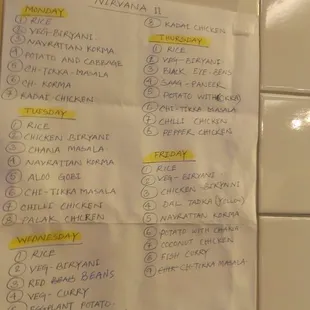 NIRVANA II
MONDAY
① RICE
② VEG-BIRYANI
③ NAVRATTAN KORMA
④ POTATO AND CABBAGE
⑤ CH-TIKKA-MASALA
⑥ CH-KORMA
⑦ KADAI CHICKEN
TUESDAY
① RICE
② CHICKEN BIRYANI
③ CHANA MASALA
④ NAVRATTAN KORMA
⑤ ALOO GOBI
⑥ CHI-TIKKA MASALA
⑦ CHILLI CHICKEN
⑧ PALAK CHICKEN
WEDNESDAY
① RICE
② VEG-BIRYANI
③ RED BEANS
④ VEG-CURRY
⑤ EGGPLANT POTATO-
⑧ KADAI CHICKEN
THURSDAY
① RICE
② VEG-BIRYANI
③ BLACK EYE-BENS
④ SAAG-PANEER
⑤ POTATO WITH
⑥ CHI-TIKKA MASALA
⑦ CHILLI CHICKEN
⑧ PEPPER CHICKEN
FRIDAY
① RICE
② VEG-BIRYANI
③ CHICKEN-BIRYANNI
④ DAL TADKA (YELLOW)
⑤ NAVRATTAN KORMA
⑥ POTATO WITH CHANA
⑦ COCONUT CHICKEN
⑧ FISH CURRY
⑨ CHI-TIKKA MASALA